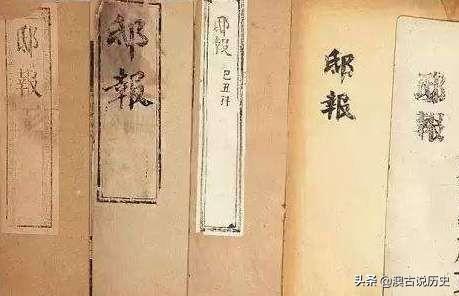 邸報
邸報
邸報
巳丑
邸報
邸報
头条 @澳古说历史